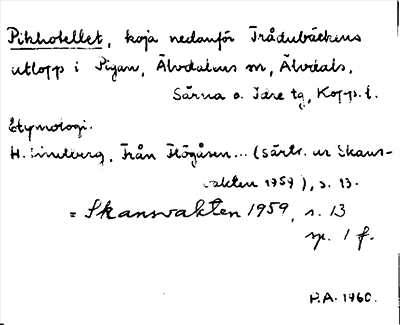 Pikhotellet, koja nedanför Trådubäckens
utlopp i Pigan, Älvdalens sn, Älvdals,
Särna o. Idre tg, Kopp. l.
Etymologi.
H. Lindberg, Från Högåsen... (särtr. ur Skans-
vakten 1959), s. 13.
= Skansvakten 1959, s. 13
sp. 1 f.
P.A. 1960.